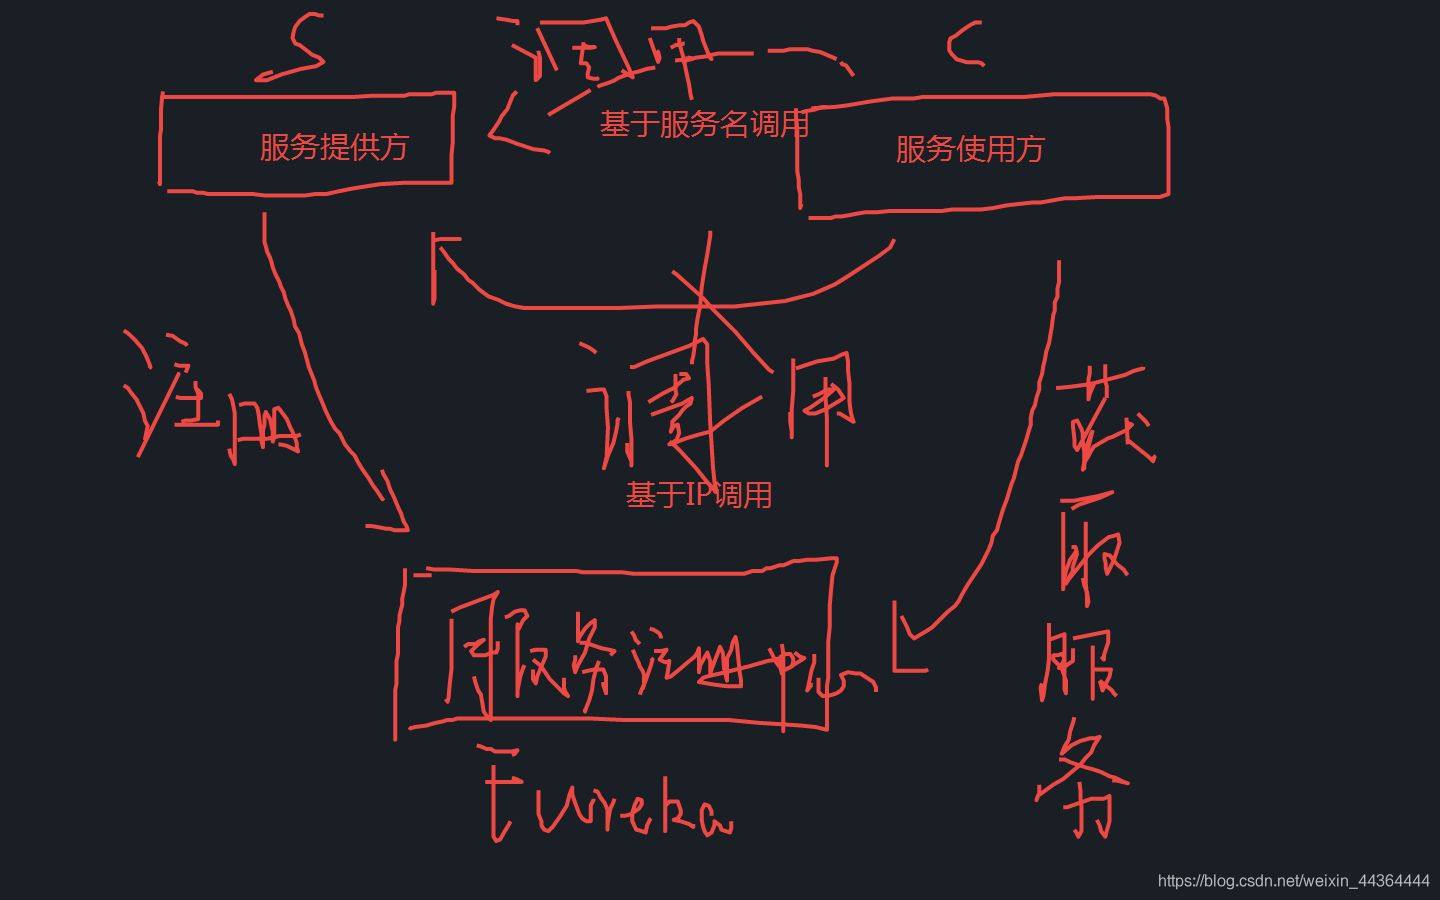 S
调用
C
基于服务名调用
服务提供方
服务使用方
注册
调用
基于IP调用
获取服务
服务注册中心
Eureka
https://blog.csdn.net/weixin_44364444